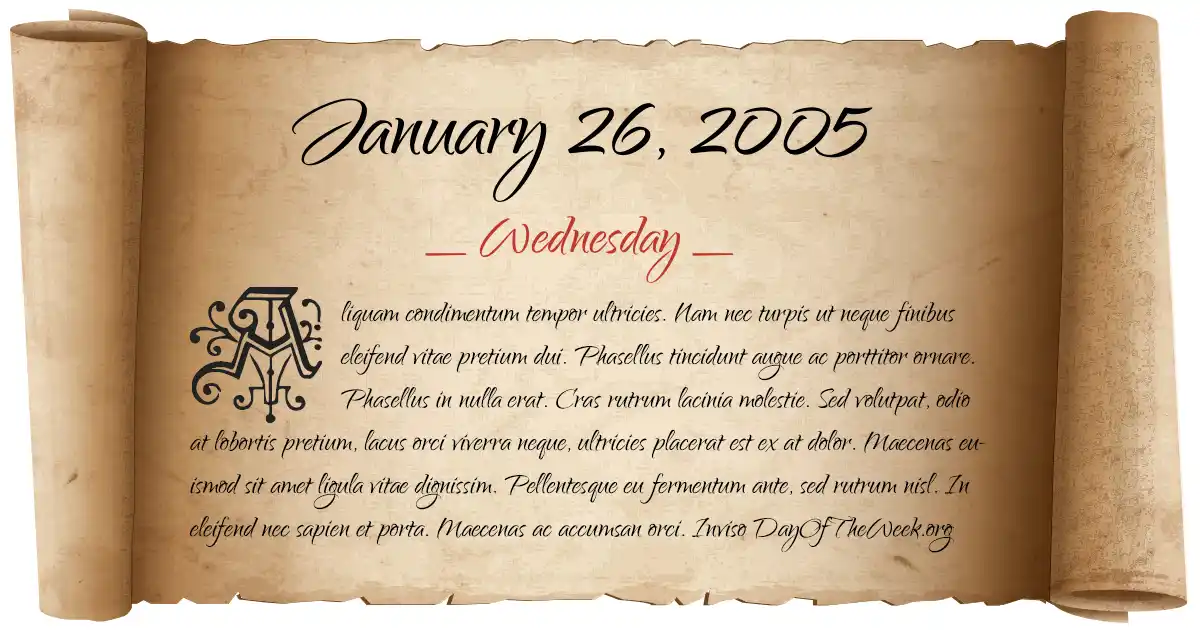 January 26, 2005
Wednesday
Aliquam condimentum tempor ultricies. Nam nec turpis ut neque finibus
eleifend vitae pretium dui. Phasellus tincidunt augue ac porttitor ornare.
Phasellus in nulla erat. Cras rutrum lacinia molestie. Sed volutpat, odio
at lobortis pretium, lacus orci viverra neque, ultricies placerat est ex at dolor. Maecenas eu-
ismod sit amet ligula vitae dignissim. Pellentesque eu fermentum ante, sed rutrum nisl. In
eleifend nec sapien et porta. Maecenas ac accumsan orci. Inviso DayOfTheWeek.org